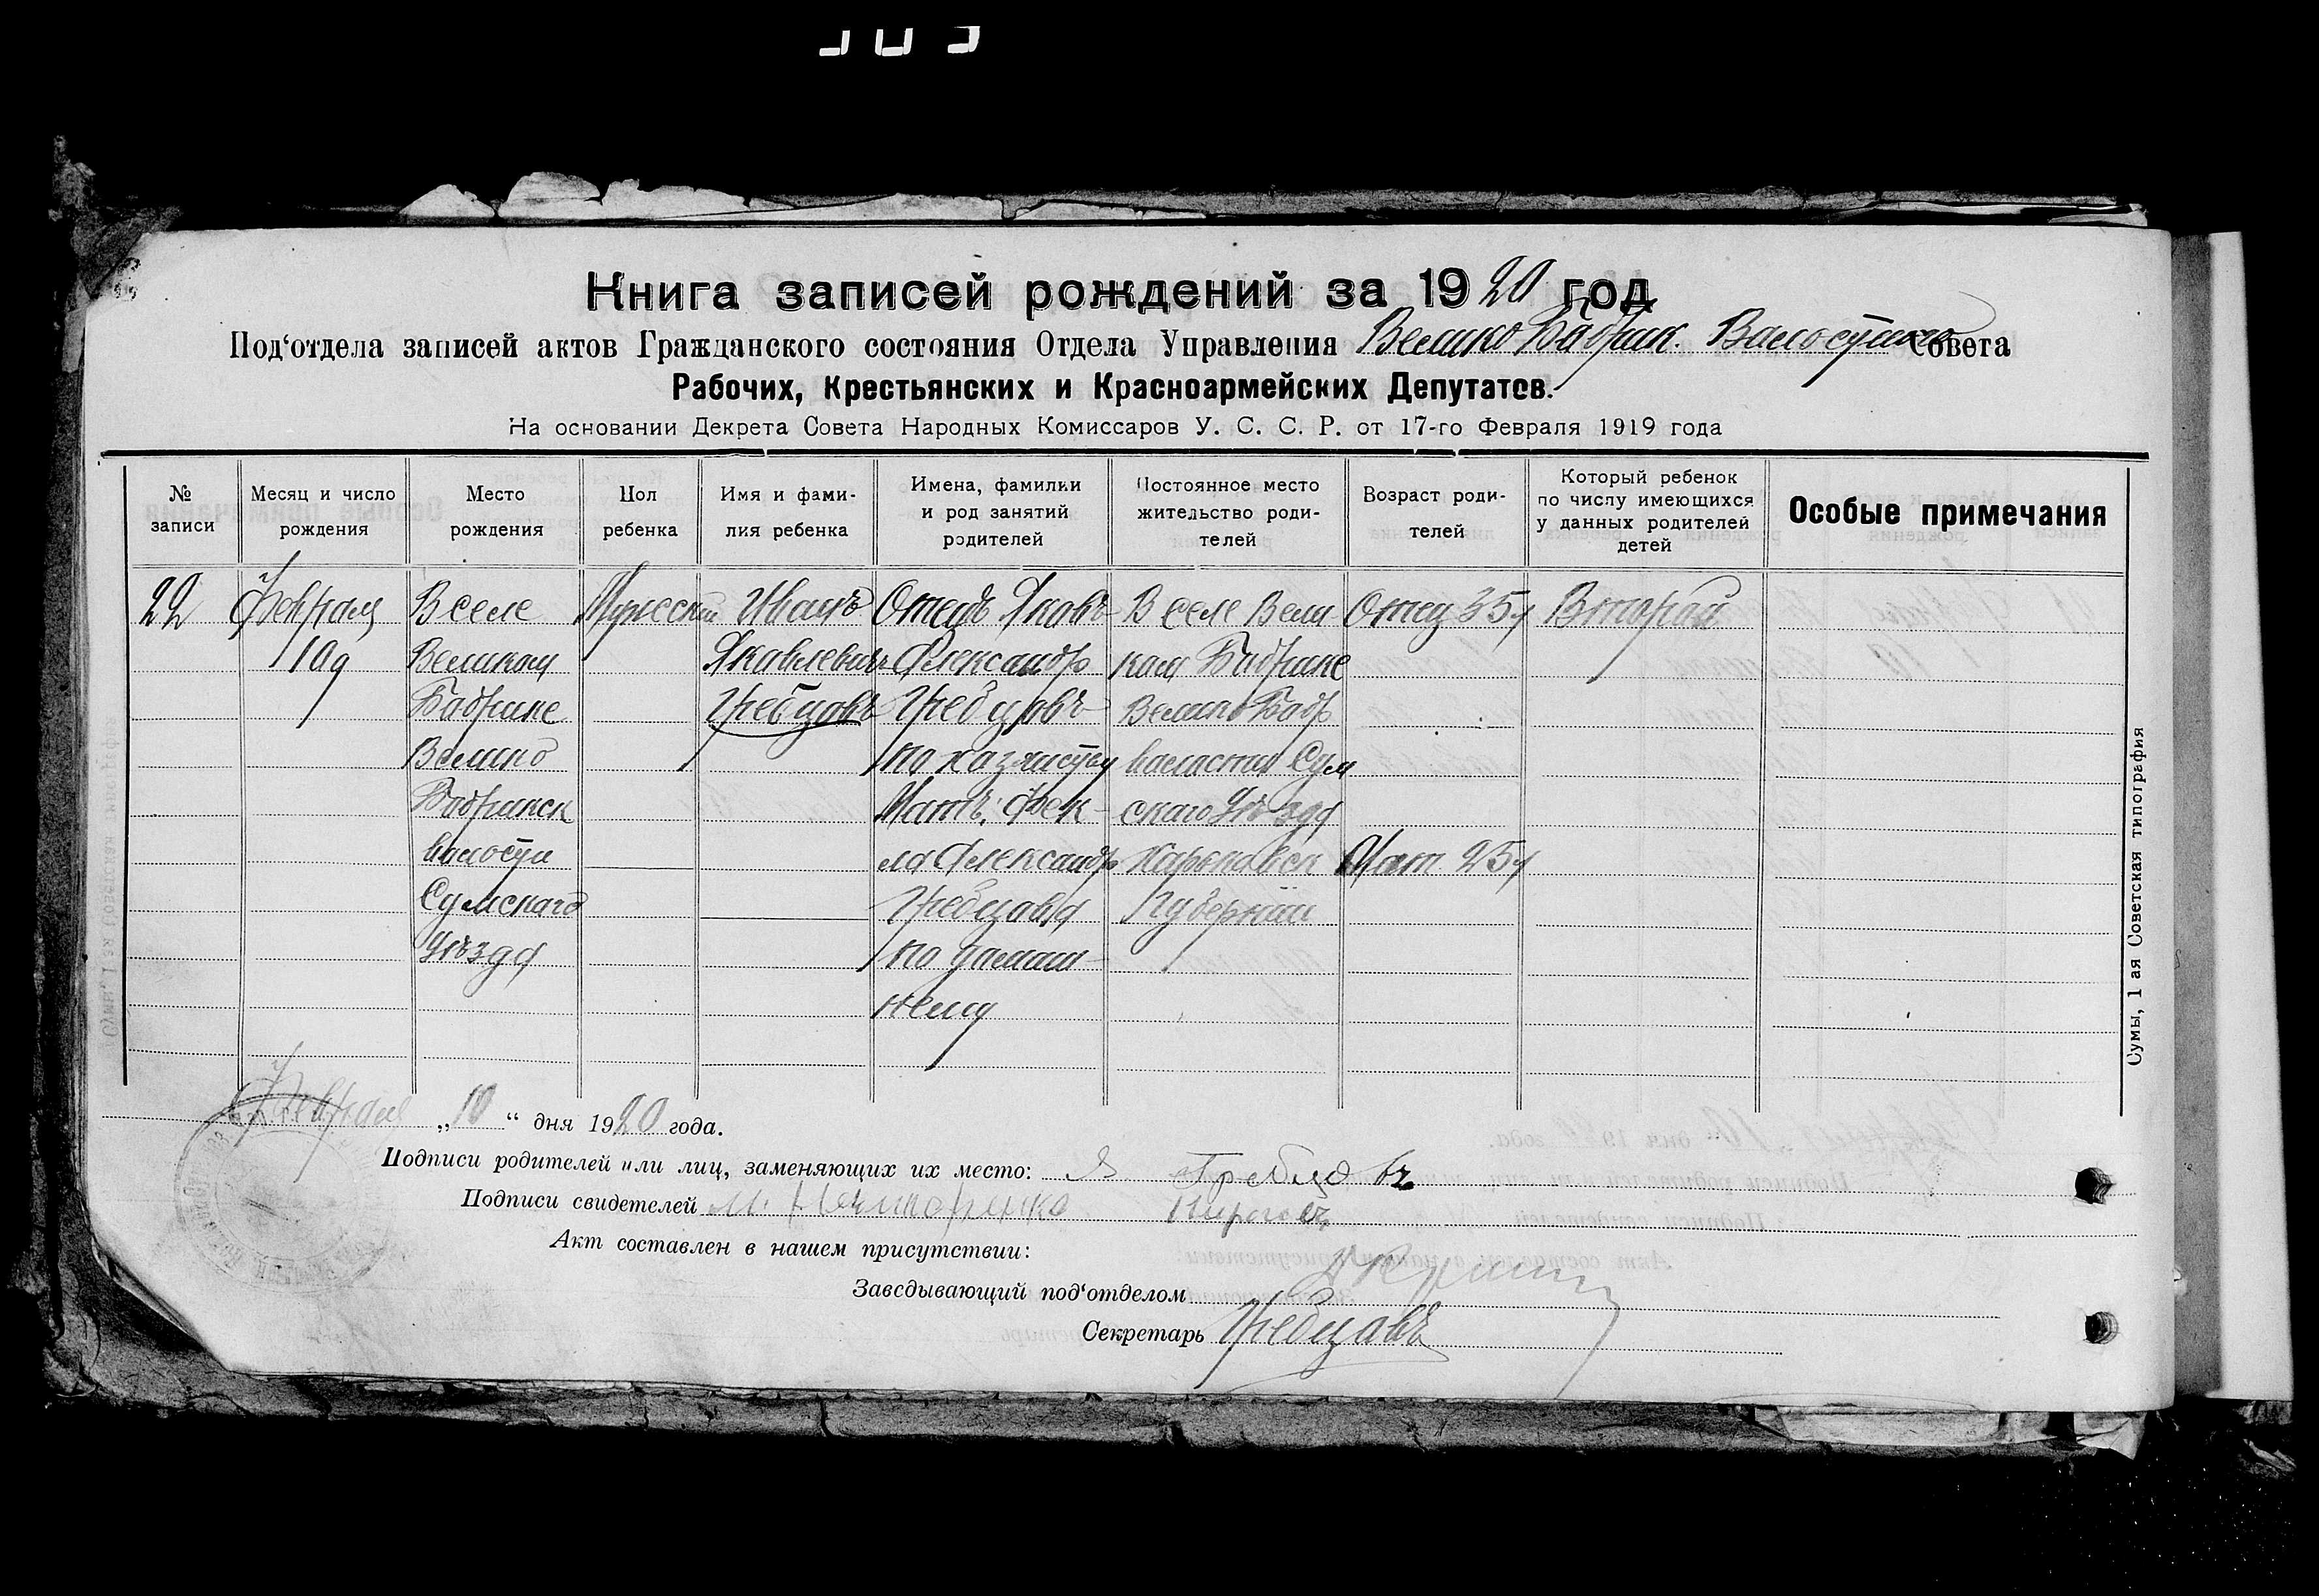 Книга записей рождений за 1920 год
Под‘отдела записей актов Гражданского состояния Отдела Управления Велико Бобрик. Валостного Совета
Рабочих, Крестьянских и Красноармейских Депутатов.
На основании Декрета Совета Народных Комиссаров У. С. С. Р. от 17-го Февраля 1919 года
№ записи
Месяц и число рождения
Место рождения
Пол ребенка
Имя и фами-
лия ребенка
Имена, фамилии
и род занятий
родителей
Постоянное место
жительство роди-
телей
Возраст роди-
телей
Который ребенок
по числу имеющихся
у данных родителей
детей
Особые примечания
22
Февраля
10д
В селе
Великом
Бобрике
Велико
Бобринск
валости
Сумскаго
Уѣзда
Мужеский
Иванъ
Яковлевичъ
Гребцовъ
Отецъ Яковъ
Александр
Гребцовъ
по хазяйству
Мать: Фек-
ла Александр
Гребцова
по дамаш-
нему
В селе Вели-
ком Бобрике
Велико Бобр
валасти Сум
скаго Уѣзда
Харьковск
Губернии
Отец 35 л
Мат. 25 л
Второй
Февраля „10“ дня 1920 года.
Подписи родителей или лиц, заменяющих их место: Я Гребцовъ
Подписи свидетелей М. Пироговъ
Акт составлен в нашем присутствии:
Заведывающий под‘отделом
Секретарь Гребцовъ
Сумы, 1 ая Советская типография